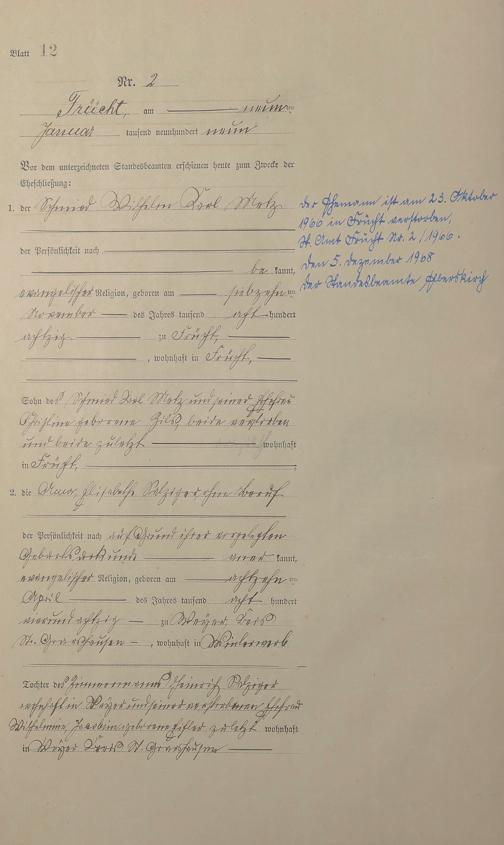 Blatt 12
Nr. 2
Frücht, am neun ten
Januar tausend neunhundert neun
Vor dem unterzeichneten Standesbeamten erschienen heute zum Zwecke der
Eheschließung:
1. der Schmied Wilhelm Karl Metz
der Persönlichkeit nach
be kannt,
evangelischer Religion, geboren am siebzehn ten
November des Jahres tausend acht hundert
achtzig zu Frücht,
, wohnhaft in Frücht,
Sohn des Schmied Karl Metz und seiner Ehefrau
Christine geborene beide verstorben
und beide zuletzt wohnhaft
in Frücht,
2. die Anna Elisabethe ohne Beruf
der Persönlichkeit nach auf Grund ihrer vorgelegten
Geburtsurkunde aner kannt,
evangelischer Religion, geboren am achtzehn ten
April des Jahres tausend acht hundert
vierundachtzig zu Weyer, Kreis
St. Goarshausen, wohnhaft in Winterwerb
Tochter des Zimmermanns Heinrich
wohnhaft in Weyer und seiner verstorbenen Ehefrau
Wilhelmine, geborene zuletzt wohnhaft
in Weyer Kreis St. Goarshausen
Der Ehemann ist am 23. Oktober
1966 in Frücht verstorben,
St. Amt Frücht Nr. 2/1966.
Den 5. Dezember 1968
Der Standesbeamte